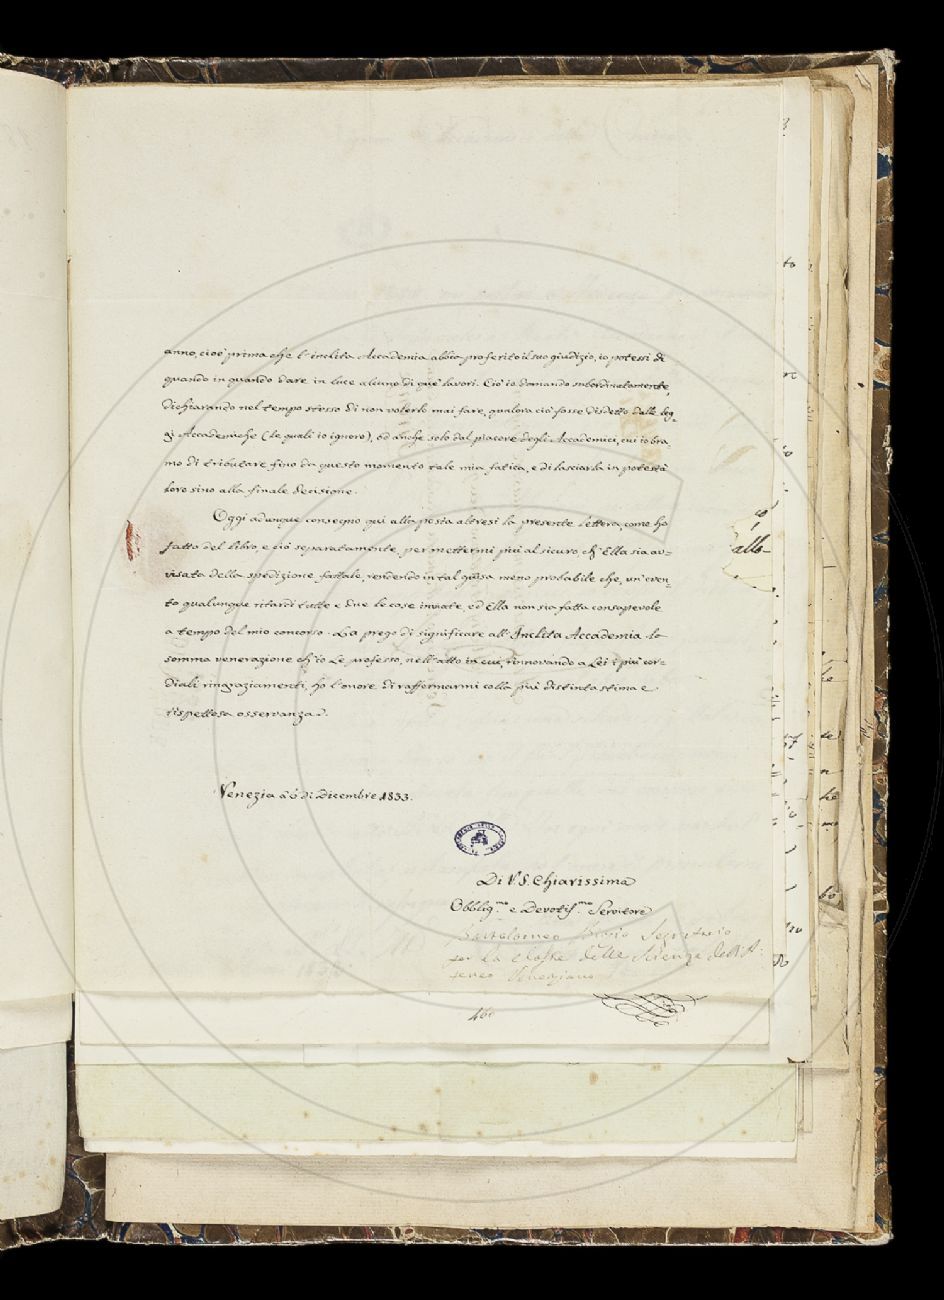 anno, cioè prima che l'inclita Accademia abbia proferito il suo giudizio, io potessi di
quando in quando dare in luce alcuno di que' lavori. Ciò io domando subordinatamente,
dichiarando nel tempo stesso di non volerlo mai fare, qualora ciò fosse disdetto dalle leg-
gi Accademiche (le quali io ignoro), od anche solo dal piacere degli Accademici, cui io bra-
mo di tributare fino da questo momento tale mia fatica, e di lasciarla in potestà
loro sino alla finale decisione.
Oggi adunque consegno qui alla posta altresì la presente lettera, come ho
fatto del libro, e ciò separatamente, per mettermi più al sicuro, ch'Ella sia av-
visata della spedizione fattale, rendendo in tal guisa meno probabile che, un even-
to qualunque ritardi tutte e due le cose inviate, ed Ella non sia fatta consapevole
a tempo del mio concorso. La prego di significare all'Inclita Accademia la
somma venerazione ch'io Le professo, nell'atto in cui, rinnovando a Lei i più cor-
diali ringraziamenti, ho l'onore di raffermarmi colla più distinta stima e
rispettosa osservanza.
Venezia a 6 di Dicembre 1833.
Di V. S. Chiarissima
Obblig.mo e Devotiss.mo Servitore
Bartolomeo Segretario
per la Classe delle Scienze dell'A-
teneo Veneziano
allo-